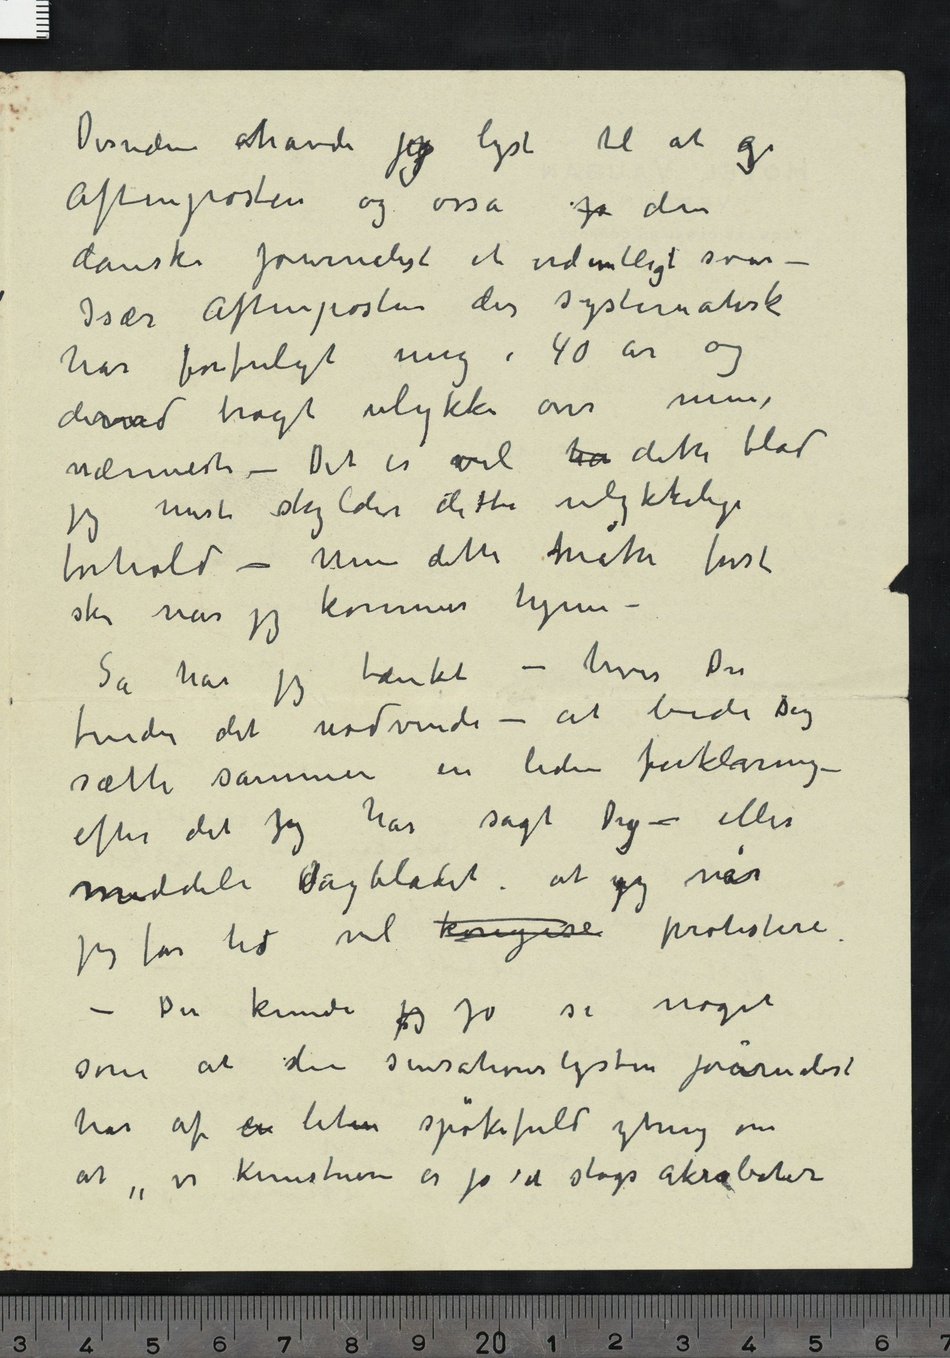 Desuden havde jeg lyst til at gi
Aftenposten og osså den
danske journalist et ordentligt svar –
Især Aftenposten der systematisk
har forfulgt mig i 40 år og
derved bragt ulykke over mine
nærmeste – Det er vel dette blad
jeg mest skylder dette ulykkelige
forhold – Men dette måtte først
ske når jeg kommer hjem –
Så har jeg tænkt – hvis Du
finder det nødvendi – at bede Dig
sætte sammen en liden forklaring –
efter det jeg har sagt Dig – eller
meddele Dagbladet. at jeg når
jeg får tid vil protistere.
– Du kunde jeg jo si noget
som at den sensationslystne journalist
har af en liten spøkefuld ytring om
at „ vi Kunstnere er jo et slags akrobater
3 4 5 6 7 8 9 20 1 2 3 4 5 6 7